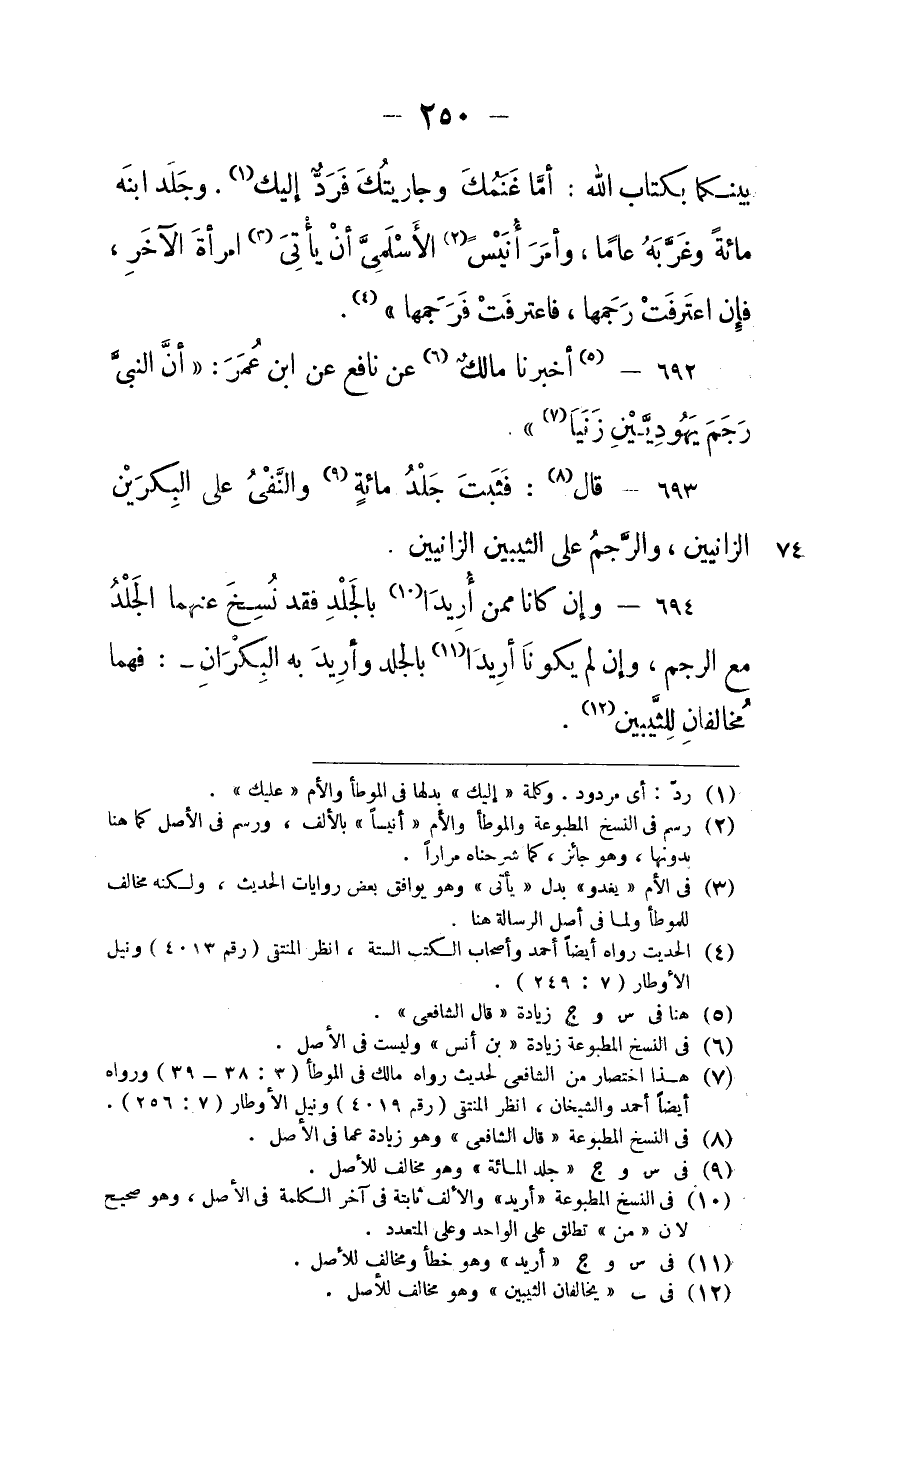 — ٢٥٠ —
بينكما بكتاب الله : أمَّا غَنَمُكَ وجاريتُكَ فَرَدٌّ إليك(١) . وجَلَد ابنَه
مائةً وغَرَّبَهُ عامًا ، وأمَرَ أُنَيْسً(٢) الأَسْلَمِيَّ أنْ يأْتِيَ(٣) امرأةَ الآخَرِ ،
فإن اعتَرفَتْ رَجَمها ، فاعترفَتْ فَرَجَمها » (٤) .
٦٩٢ — (٥) أخبرنا مالكٌ (٦) عن نافع عن ابن عُمَرَ : « أنَّ النبيَّ
رَجَمَ يَهُودِيَّيْنِ زَنَيَا(٧) » .
٦٩٣ — قال(٨) : فَثَبَتَ جَلْدُ مائةٍ (٩) والنَّفْيُ على البِكرَيْن
الزانيين ، والرَّجمُ على الثيبين الزانيين . ٧٤
٦٩٤ — وإن كانا ممن أُرِيدَا(١٠) بالجَلْدِ فقد نُسِخَ عنهما الجَلْدُ
مع الرجم ، وإن لم يكونَا أُرِيدَا(١١) بالجلد وأُرِيدَ به البِكْرَانِ — : فهما
مُخالفانِ لِلثَّيبين(١٢) .
(١) ردّ : أى مردود . وكلمة « إليك » بدلها فى الموطأ والأم « عليك » .
(٢) رسم فى النسخ المطبوعة والموطأ والأم « أنيساً » بالألف ، ورسم فى الأصل كما هنا
بدونها ، وهو جائز ، كما شرحناه مراراً .
(٣) فى الأم « يغدو » بدل « يأتى » وهو يوافق بعض روايات الحديث ، ولكنه مخالف
للموطأ ولما فى أصل الرسالة هنا .
(٤) الحديث رواه أيضاً أحمد وأصحاب الكتب الستة ، انظر المنتقى ( رقم ٤٠١٣ ) ونيل
الأوطار ( ٧ : ٢٤٩ ) .
(٥) هنا فى س و ج زيادة « قال الشافعى » .
(٦) فى النسخ المطبوعة زيادة « بن أنس » وليست فى الأصل .
(٧) هذا اختصار من الشافعى لحديث رواه مالك فى الموطأ ( ٣ : ٣٨ — ٣٩ ) ورواه
أيضاً أحمد والشيخان ، انظر المنتقى ( رقم ٤٠١٩ ) ونيل الأوطار ( ٧ : ٢٥٦ ) .
(٨) فى النسخ المطبوعة « قال الشافعى » وهو زيادة عما فى الأصل .
(٩) فى س و ج « جلد المائة » وهو مخالف للأصل .
(١٠) فى النسخ المطبوعة «أريد» والألف ثابتة فى آخر الكلمة فى الأصل ، وهو صحيح
لأن « من » تطلق على الواحد وعلى المتعدد .
(١١) فى س و ج « أريد » وهو خطأ ومخالف للأصل .
(١٢) فى ب « يخالفان الثيبين » وهو مخالف للأصل .